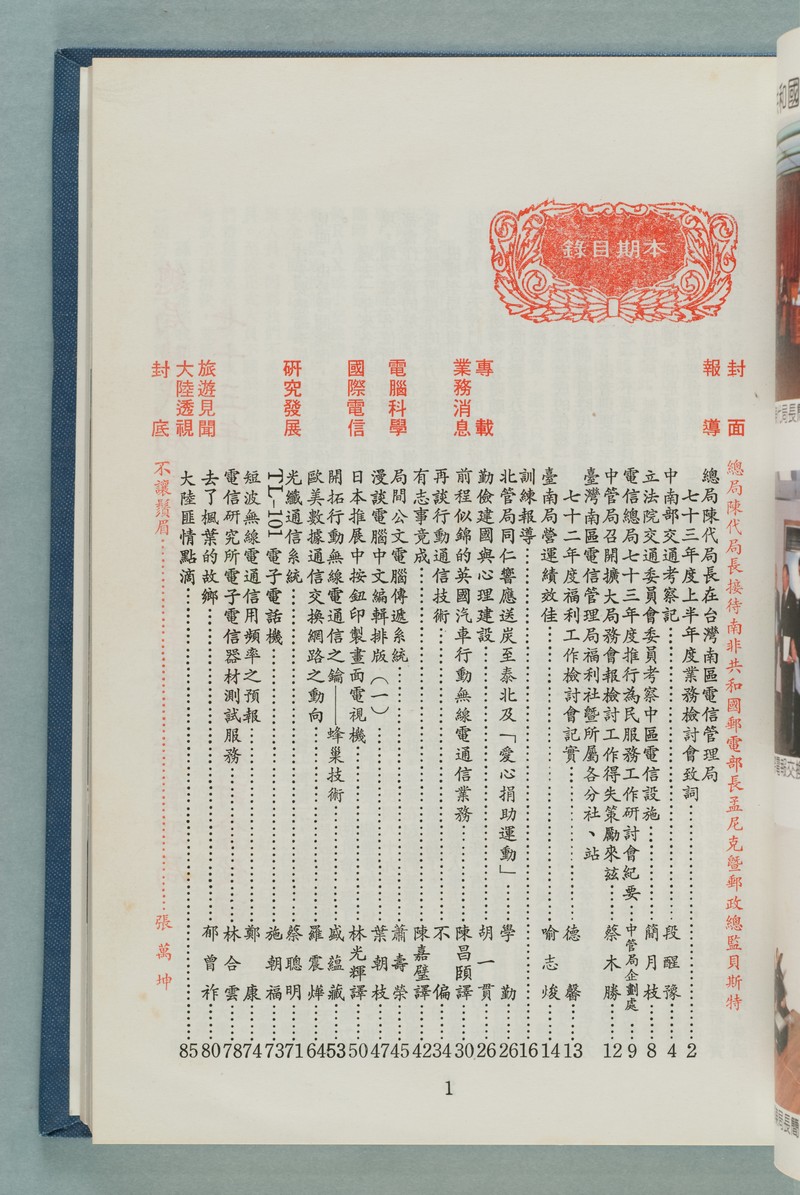 本期目錄
封面
總局陳代局長接待南非共和國郵電部長孟尼克暨郵政總監貝斯特
報導
總局陳代局長在台灣南區電信管理局
七十三年度上半年度業務檢討會致詞……2
中南部交通考察記……段醒豫……4
立法院交通委員會委員考察中區電信設施……簡月枝……8
電信總局七十三年度推行為民服務工作研討會紀要……中管局企劃處……9
中管局召開擴大局務會報檢討工作得失策勵來茲……蔡木勝……12
臺灣南區電信管理局福利社暨所屬各分社、站
七十二年度福利工作檢討會記實……德馨……13
臺南局營運績效佳……喻志焌……14
訓練報導……16
北管局同仁響應送炭至泰北及「愛心捐助運動」……學勤……26
專載
勤儉建國與心理建設……胡一貫……26
業務消息
前程似錦的英國汽車行動無線電通信業務……陳昌頤譯……30
再談行動通信技術……不偏……34
有志事竟成……陳嘉璧譯……42
電腦科學
局間公文電腦傳遞系統……蕭壽榮……45
漫談電腦中文編輯排版（一）……葉朝枝……47
國際電信
日本推展中按鈕印製畫面電視機……林光輝譯……50
開拓行動無線電通信之鑰——蜂巢技術……盛蘊藏……53
歐美數據通信交換網路之動向……羅震燁……64
研究發展
光纖通信系統……蔡聰明……71
TL-101電子電話機……施朝福……73
短波無線電通信用頻率之預報……鄭康……74
電信研究所電子電信器材測試服務……林合雲……78
旅遊見聞
去了楓葉的故鄉……郁曾祚……80
大陸透視
大陸匪情點滴……85
封底
不讓鬚眉……張萬坤
1